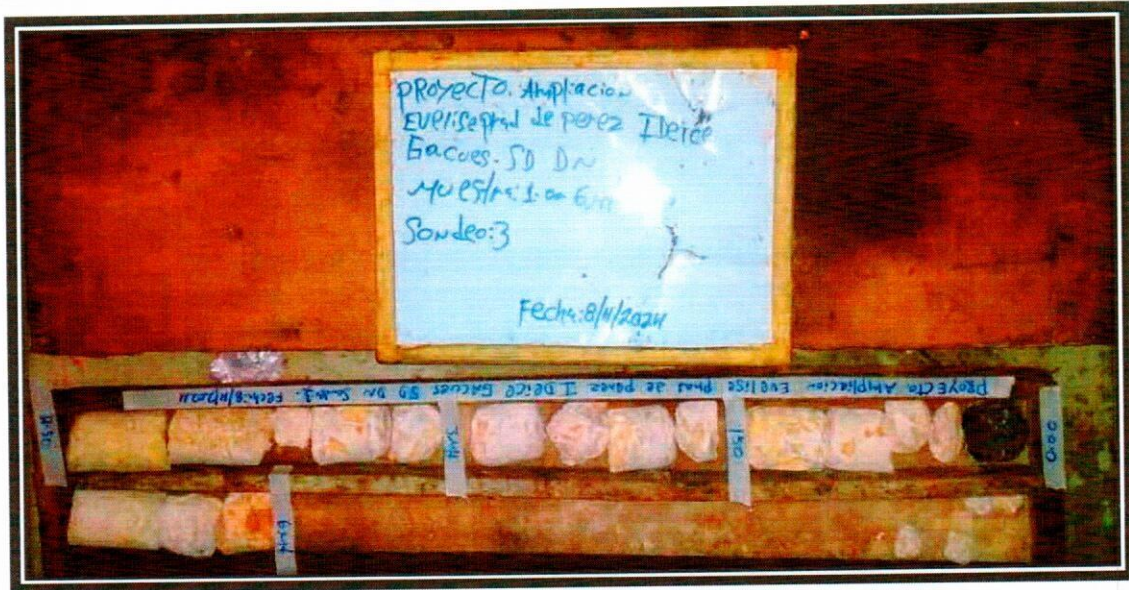 PROYECTO. Ampliacion
EVELISE prad de perez IDeice
Gacues. SD DN
Muestra: 1
Sondeo: 3
Fecha: 8/11/2024
PROYECTO AMPLIACION EVELISE PRAd de perez IDEICE GACUES SD DN Fech: 8/11/2024
0.00
1.50